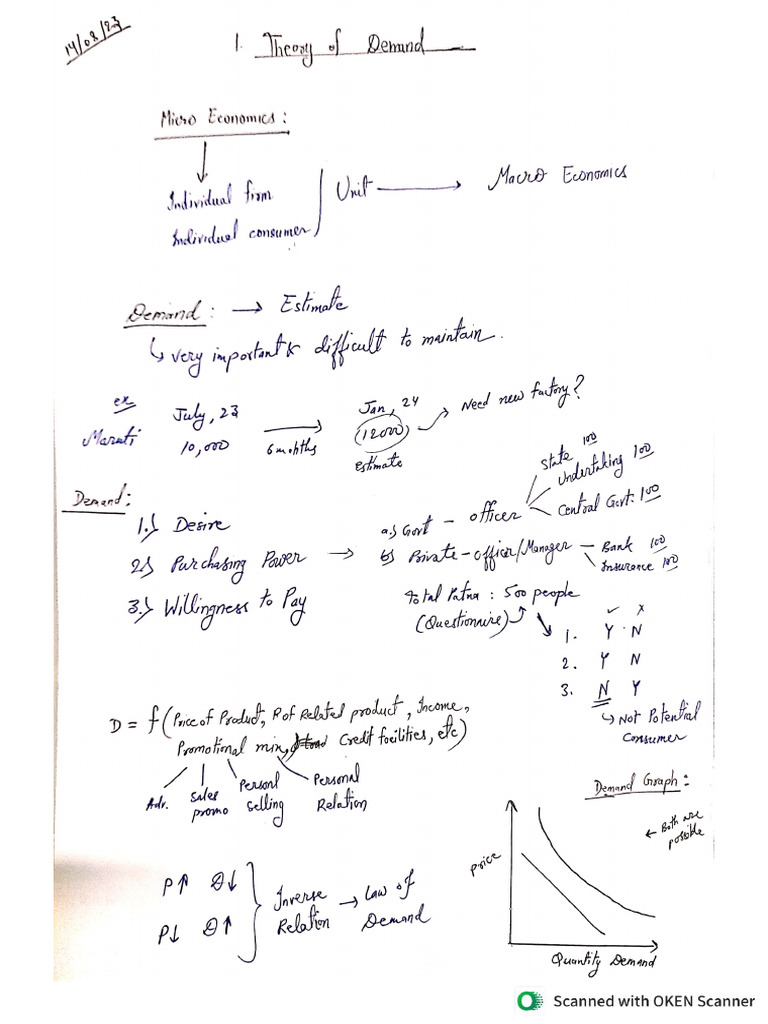 14/08/23
1. Theory of Demand
Micro Economics:
↓
Individual firm
Individual consumer
Unit → Macro Economics
Demand: → Estimate
↳ very important & difficult to maintain.
ex
Maruti
July, 23 → Jan, 24
10,000 6 months (12000) Need new factory?
estimate
Demand:
1.) Desire
2.) Purchasing Power →
3.) Willingness to Pay
a.) Govt - officer
State 100
Undertaking 100
Central Govt. 100
b) Private - officer/Manager - Bank 100
Insurance 100
Total Patna : 500 people
(Questionnaire)
✓ ×
1. Y N
2. Y N
3. N Y
↳ Not Potential
Consumer
D = f (Price of Product, P of Related product, Income,
Promotional mix, Credit facilities, etc)
Adv.
Sales
promo
Personl
Selling
Personal
Relation
P↑ D↓
P↓ D↑
Inverse
Relation
→ Law of
Demand
Demand Graph:
← Both are
possible
Price
Quantity Demand
Scanned with OKEN Scanner